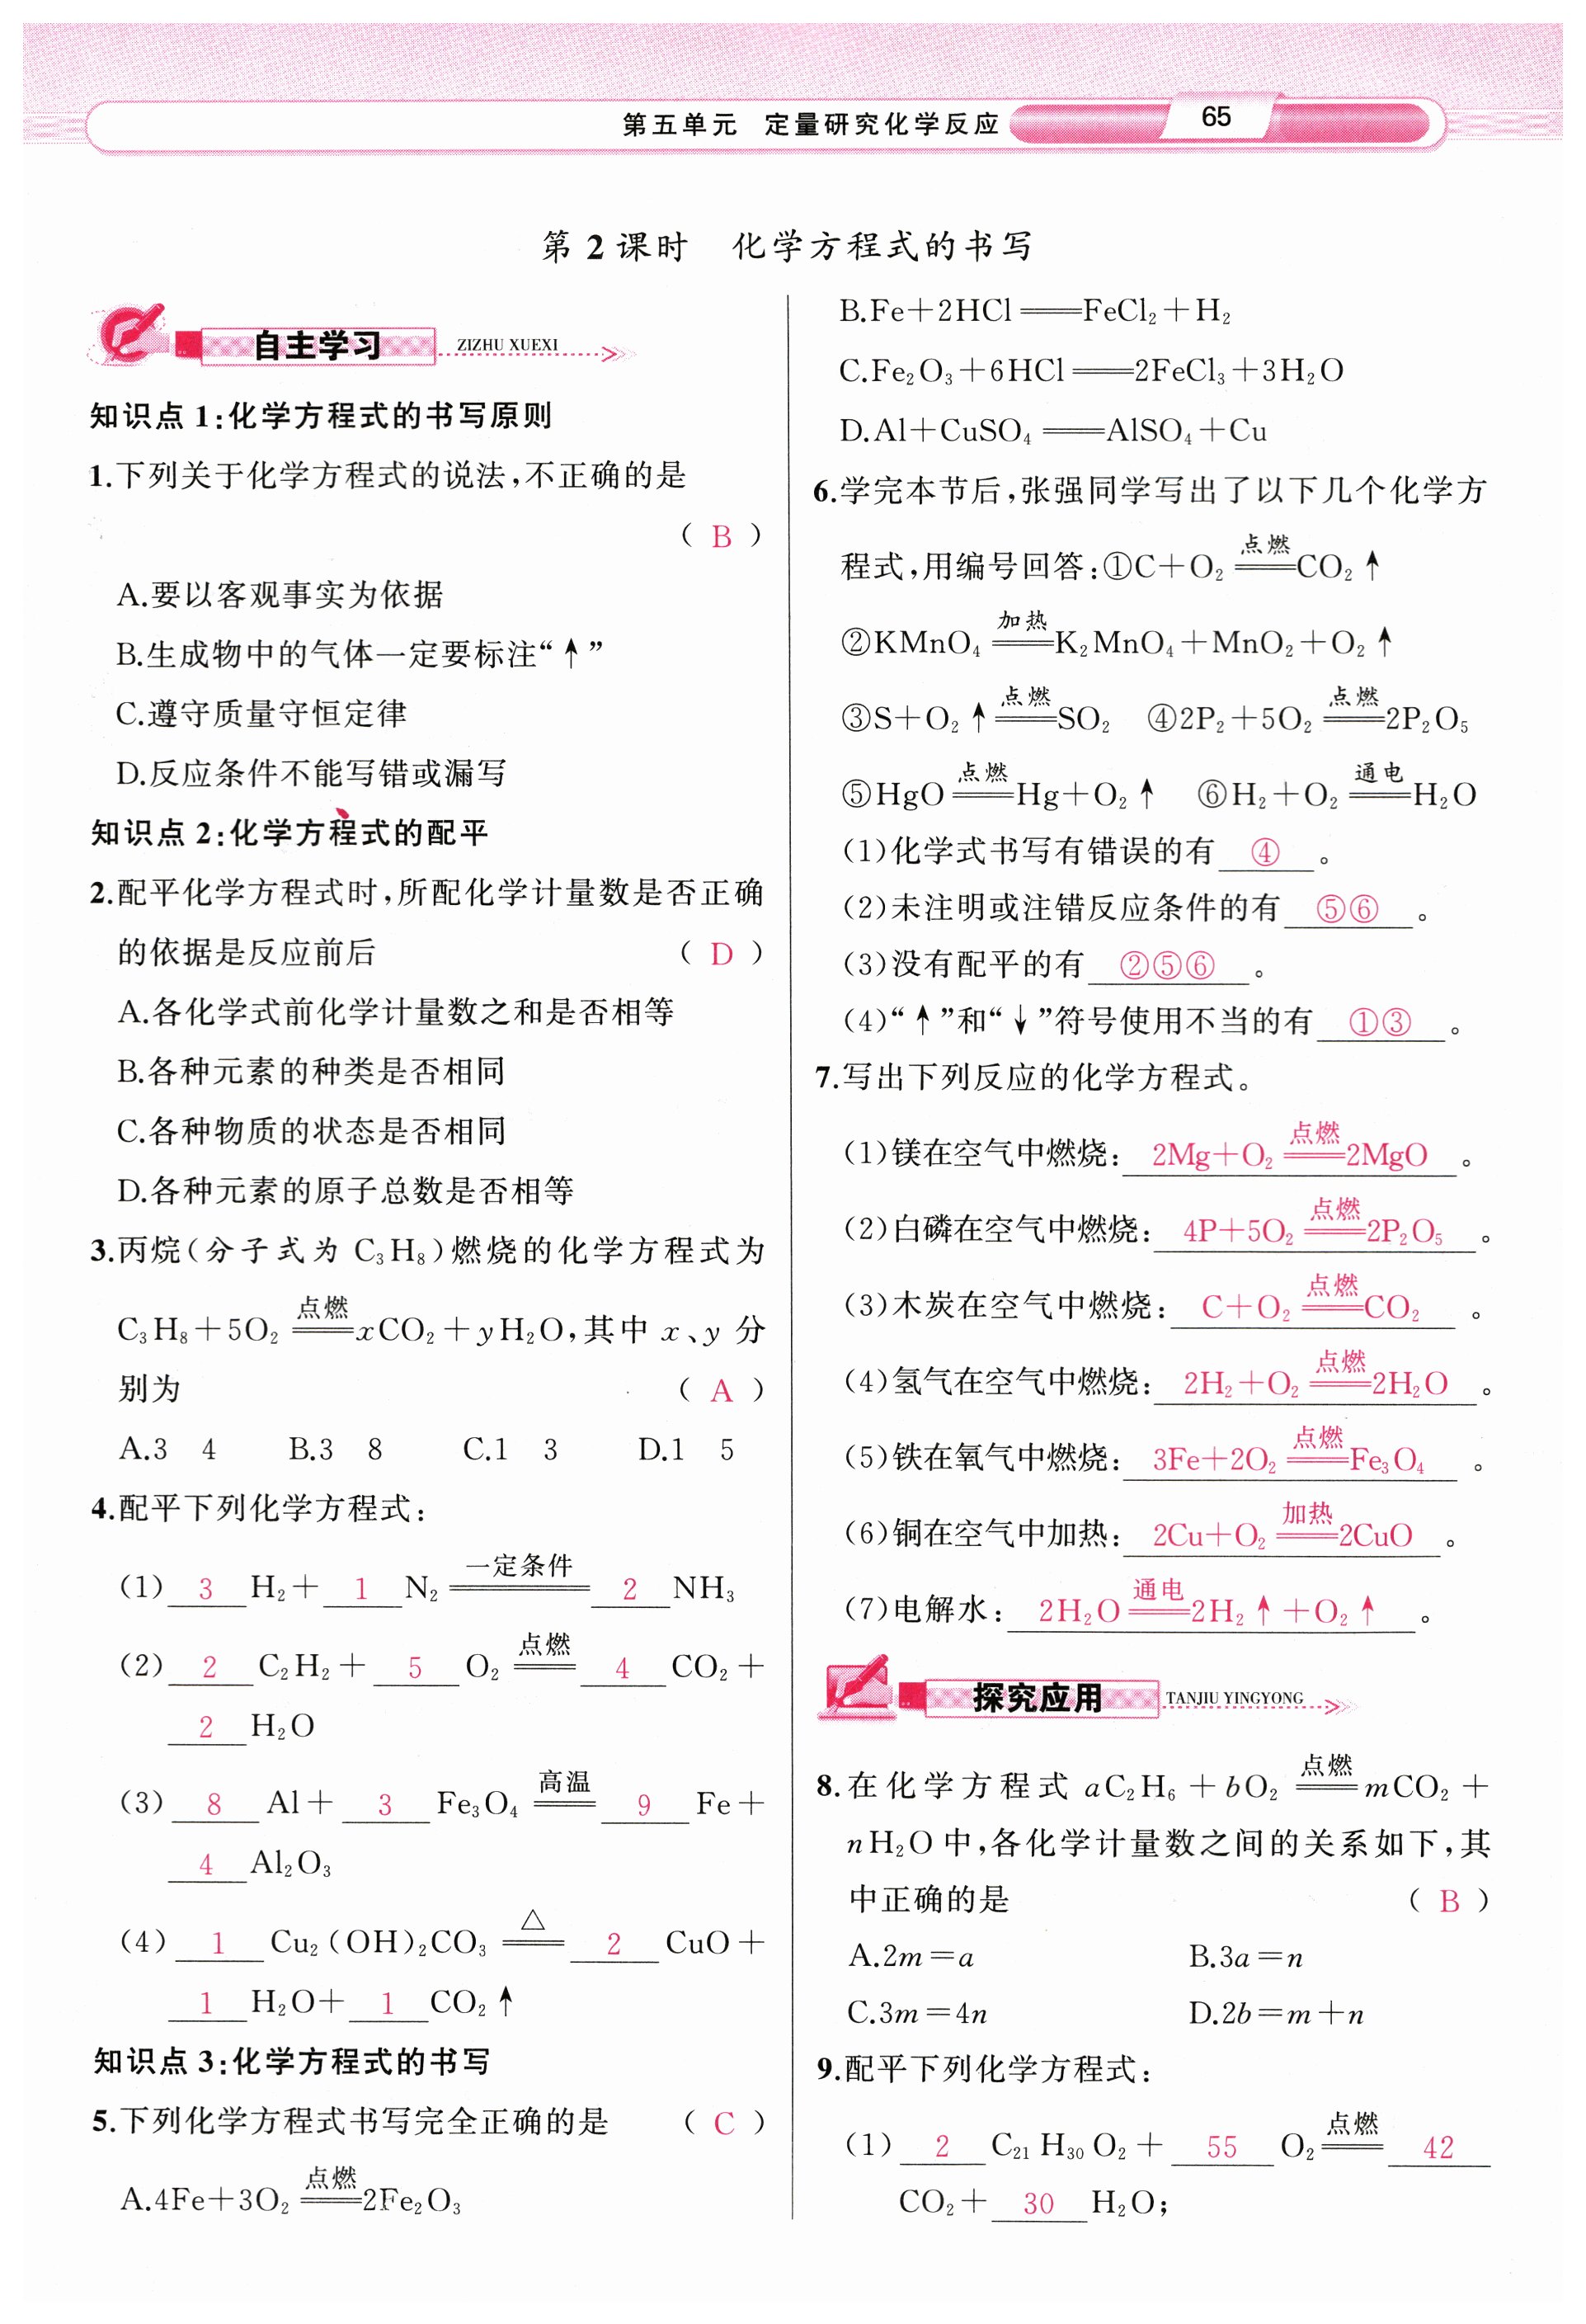 第五单元 定量研究化学反应 65
第 2 课时 化学方程式的书写
自主学习 ZIZHU XUEXI
知识点 1:化学方程式的书写原则
1.下列关于化学方程式的说法,不正确的是
( B )
A.要以客观事实为依据
B.生成物中的气体一定要标注“↑”
C.遵守质量守恒定律
D.反应条件不能写错或漏写
知识点 2:化学方程式的配平
2.配平化学方程式时,所配化学计量数是否正确
的依据是反应前后 ( D )
A.各化学式前化学计量数之和是否相等
B.各种元素的种类是否相同
C.各种物质的状态是否相同
D.各种元素的原子总数是否相等
3.丙烷(分子式为 C₃H₈)燃烧的化学方程式为
C₃H₈+5O₂ ══点燃══ xCO₂+yH₂O,其中 x、y 分
别为 ( A )
A.3 4 B.3 8 C.1 3 D.1 5
4.配平下列化学方程式:
(1) 3 H₂+ 1 N₂ ══一定条件══ 2 NH₃
(2) 2 C₂H₂+ 5 O₂ ══点燃══ 4 CO₂+
2 H₂O
(3) 8 Al+ 3 Fe₃O₄ ══高温══ 9 Fe+
4 Al₂O₃
(4) 1 Cu₂(OH)₂CO₃ ══△══ 2 CuO+
1 H₂O+ 1 CO₂↑
知识点 3:化学方程式的书写
5.下列化学方程式书写完全正确的是 ( C )
A.4Fe+3O₂ ══点燃══ 2Fe₂O₃
B.Fe+2HCl ══ FeCl₂+H₂
C.Fe₂O₃+6HCl ══ 2FeCl₃+3H₂O
D.Al+CuSO₄ ══ AlSO₄+Cu
6.学完本节后,张强同学写出了以下几个化学方
程式,用编号回答:①C+O₂ ══点燃══ CO₂↑
②KMnO₄ ══加热══ K₂MnO₄+MnO₂+O₂↑
③S+O₂↑ ══点燃══ SO₂ ④2P₂+5O₂ ══点燃══ 2P₂O₅
⑤HgO ══点燃══ Hg+O₂↑ ⑥H₂+O₂ ══通电══ H₂O
(1)化学式书写有错误的有 ④ 。
(2)未注明或注错反应条件的有 ⑤⑥ 。
(3)没有配平的有 ②⑤⑥ 。
(4)“↑”和“↓”符号使用不当的有 ①③ 。
7.写出下列反应的化学方程式。
(1)镁在空气中燃烧: 2Mg+O₂ ══点燃══ 2MgO 。
(2)白磷在空气中燃烧: 4P+5O₂ ══点燃══ 2P₂O₅ 。
(3)木炭在空气中燃烧: C+O₂ ══点燃══ CO₂ 。
(4)氢气在空气中燃烧: 2H₂+O₂ ══点燃══ 2H₂O 。
(5)铁在氧气中燃烧: 3Fe+2O₂ ══点燃══ Fe₃O₄ 。
(6)铜在空气中加热: 2Cu+O₂ ══加热══ 2CuO 。
(7)电解水: 2H₂O ══通电══ 2H₂↑+O₂↑ 。
探究应用 TANJIU YINGYONG
8.在化学方程式 aC₂H₆+bO₂ ══点燃══ mCO₂+
nH₂O 中,各化学计量数之间的关系如下,其
中正确的是 ( B )
A.2m=a B.3a=n
C.3m=4n D.2b=m+n
9.配平下列化学方程式:
(1) 2 C₂₁H₃₀O₂+ 55 O₂ ══点燃══ 42
CO₂+ 30 H₂O;